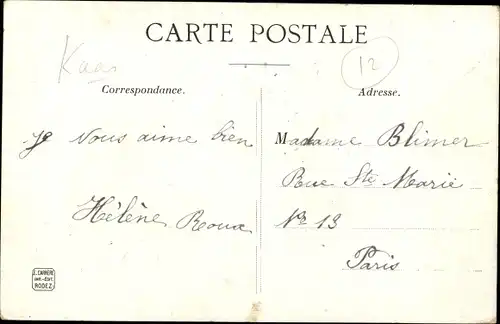 CARTE POSTALE
Kaas
12
Correspondance.
Adresse.
Je Vous aime bien
Hélène Roux
Madame Blimer
Rue Ste Marie
No 13
Paris
E. CARRERE
IMP.-EDIT.
RODEZ